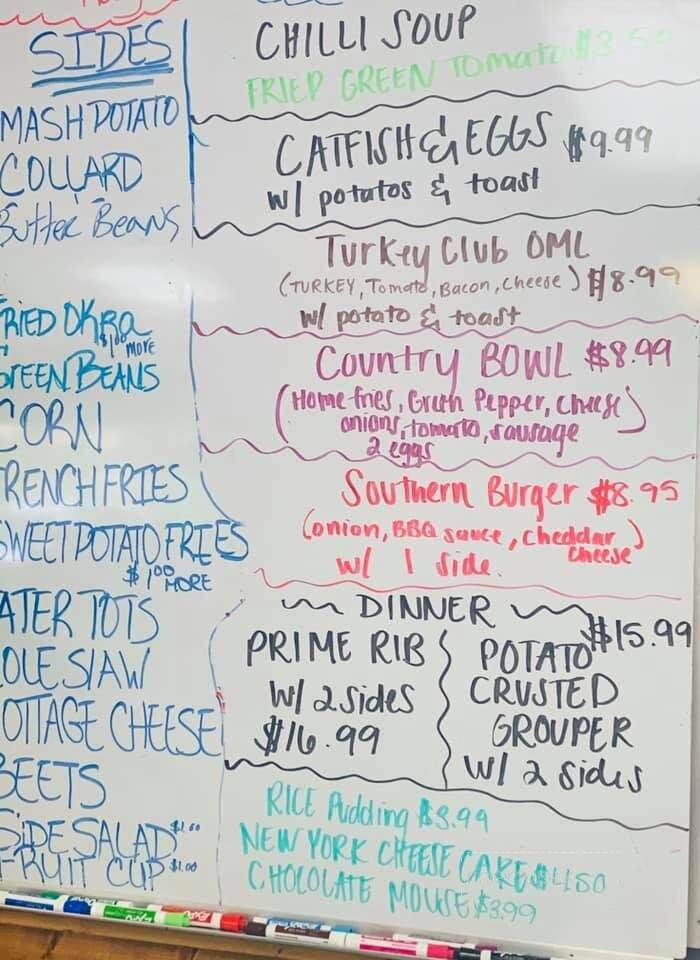 SIDES
MASH POTATO
COLLARD
Butter Beans
RIED OKRA
$1.00 MORE
REEN BEANS
CORN
RENCH FRIES
SWEET POTATO FRIES
$1.00 MORE
ATER TOTS
OLE SLAW
OTTAGE CHEESE
BEETS
SIDE SALAD $1.00
FRUIT CUP $1.00
CHILLI SOUP
FRIED GREEN Tomato $3.50
CATFISH & EGGS $9.99
w/ potatos & toast
Turkey Club OML
(TURKEY, Tomato, Bacon, Cheese) $8.99
w/ potato & toast
Country BOWL $8.99
(Home-fries, Green Pepper, cheese
onions, tomato, sausage)
2 eggs
Southern Burger $8.95
(onion, BBQ sauce, cheddar
cheese)
w/ 1 side.
DINNER
PRIME RIB
w/ 2 sides
$16.99
$15.99
POTATO
CRUSTED
GROUPER
w/ 2 sides
RICE Pudding $3.99
NEW YORK CHEESE CAKE $4.50
CHOLOLATE MOUSE $3.99